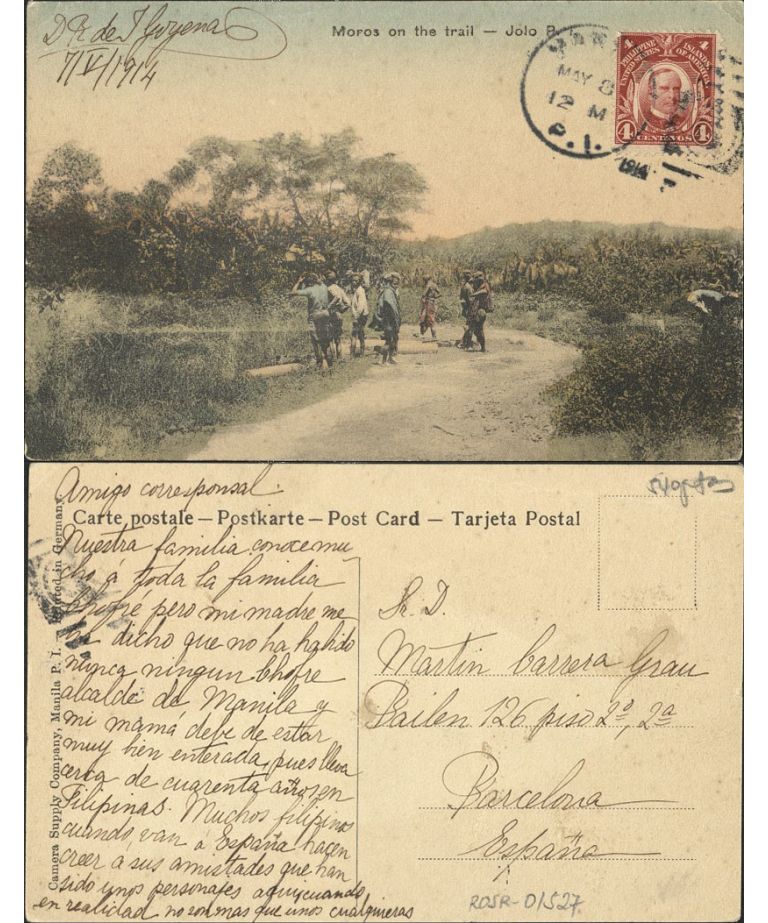 Dr de J Goyena
7/V/1914
Moros on the trail — Jolo P.
4 4
PHILIPPINE ISLANDS
UNITED STATES OF AMERICA
4 CENTAVOS 4
MAY 8
12 M
P. I.
1914
Amigo corresponsal.
Carte postale – Postkarte – Post Card – Tarjeta Postal
Nuestra familia conoce mu-
cho á toda la familia
Chofré pero mi madre me
ha dicho que no ha habido
nunca ningun Chofre
alcalde de Manila y
mi mamá debe de estar
muy bien enterada, pues lleva
cerca de cuarenta años en
Filipinas. Muchos filipinos
cuando van á España hacen
creer á sus amistades que han
sido unos personajes aqui, cuando
en realidad no son mas que unos cualquieras
Camera Supply Company, Manila P. I. Printed in Germany
Sr. D.
Martin Carrera Grau
Bailen 126 piso 2º, 2ª
Barcelona
España
ROSR-01527